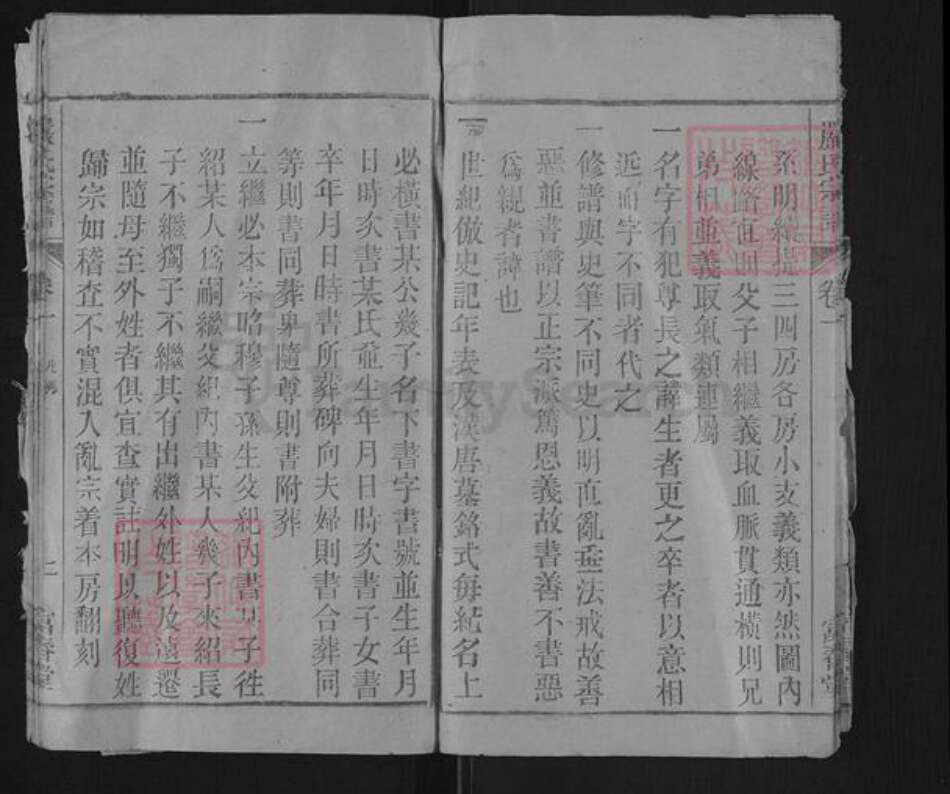 嚴氏宗譜
卷一
富春堂
系明續提三四房各房小支義類亦然圖內
線路直曲父子相繼義取血脈貫通橫則兄
弟相並義取氣類連屬
一名字有犯尊長之諱生者更之卒者以意相
近而字不同者代之
一修譜與史筆不同史以明直亂垂法戒故善
惡並書譜以正宗派篤恩義故書善不書惡
爲親者諱也
一世紀倣史記年表及漢唐墓銘式每紀名上
必橫書某公幾子名下書字書號並生年月
日時次書某氏並生年月日時次書子女書
卒年月日時書所葬碑向夫婦則書合葬同
等則書同葬卑隨尊則書附葬
一立繼必本宗昭穆子孫生父紀內書某子徃
紹某人爲嗣繼父紀內書某人幾子來紹長
子不繼獨子不繼其有出繼外姓以及遠遷
並隨母至外姓者俱宜查實註明以聽復姓
歸宗如稽查不實混入亂宗着本房翻刻
卷一
二
富春堂
FamilySearch